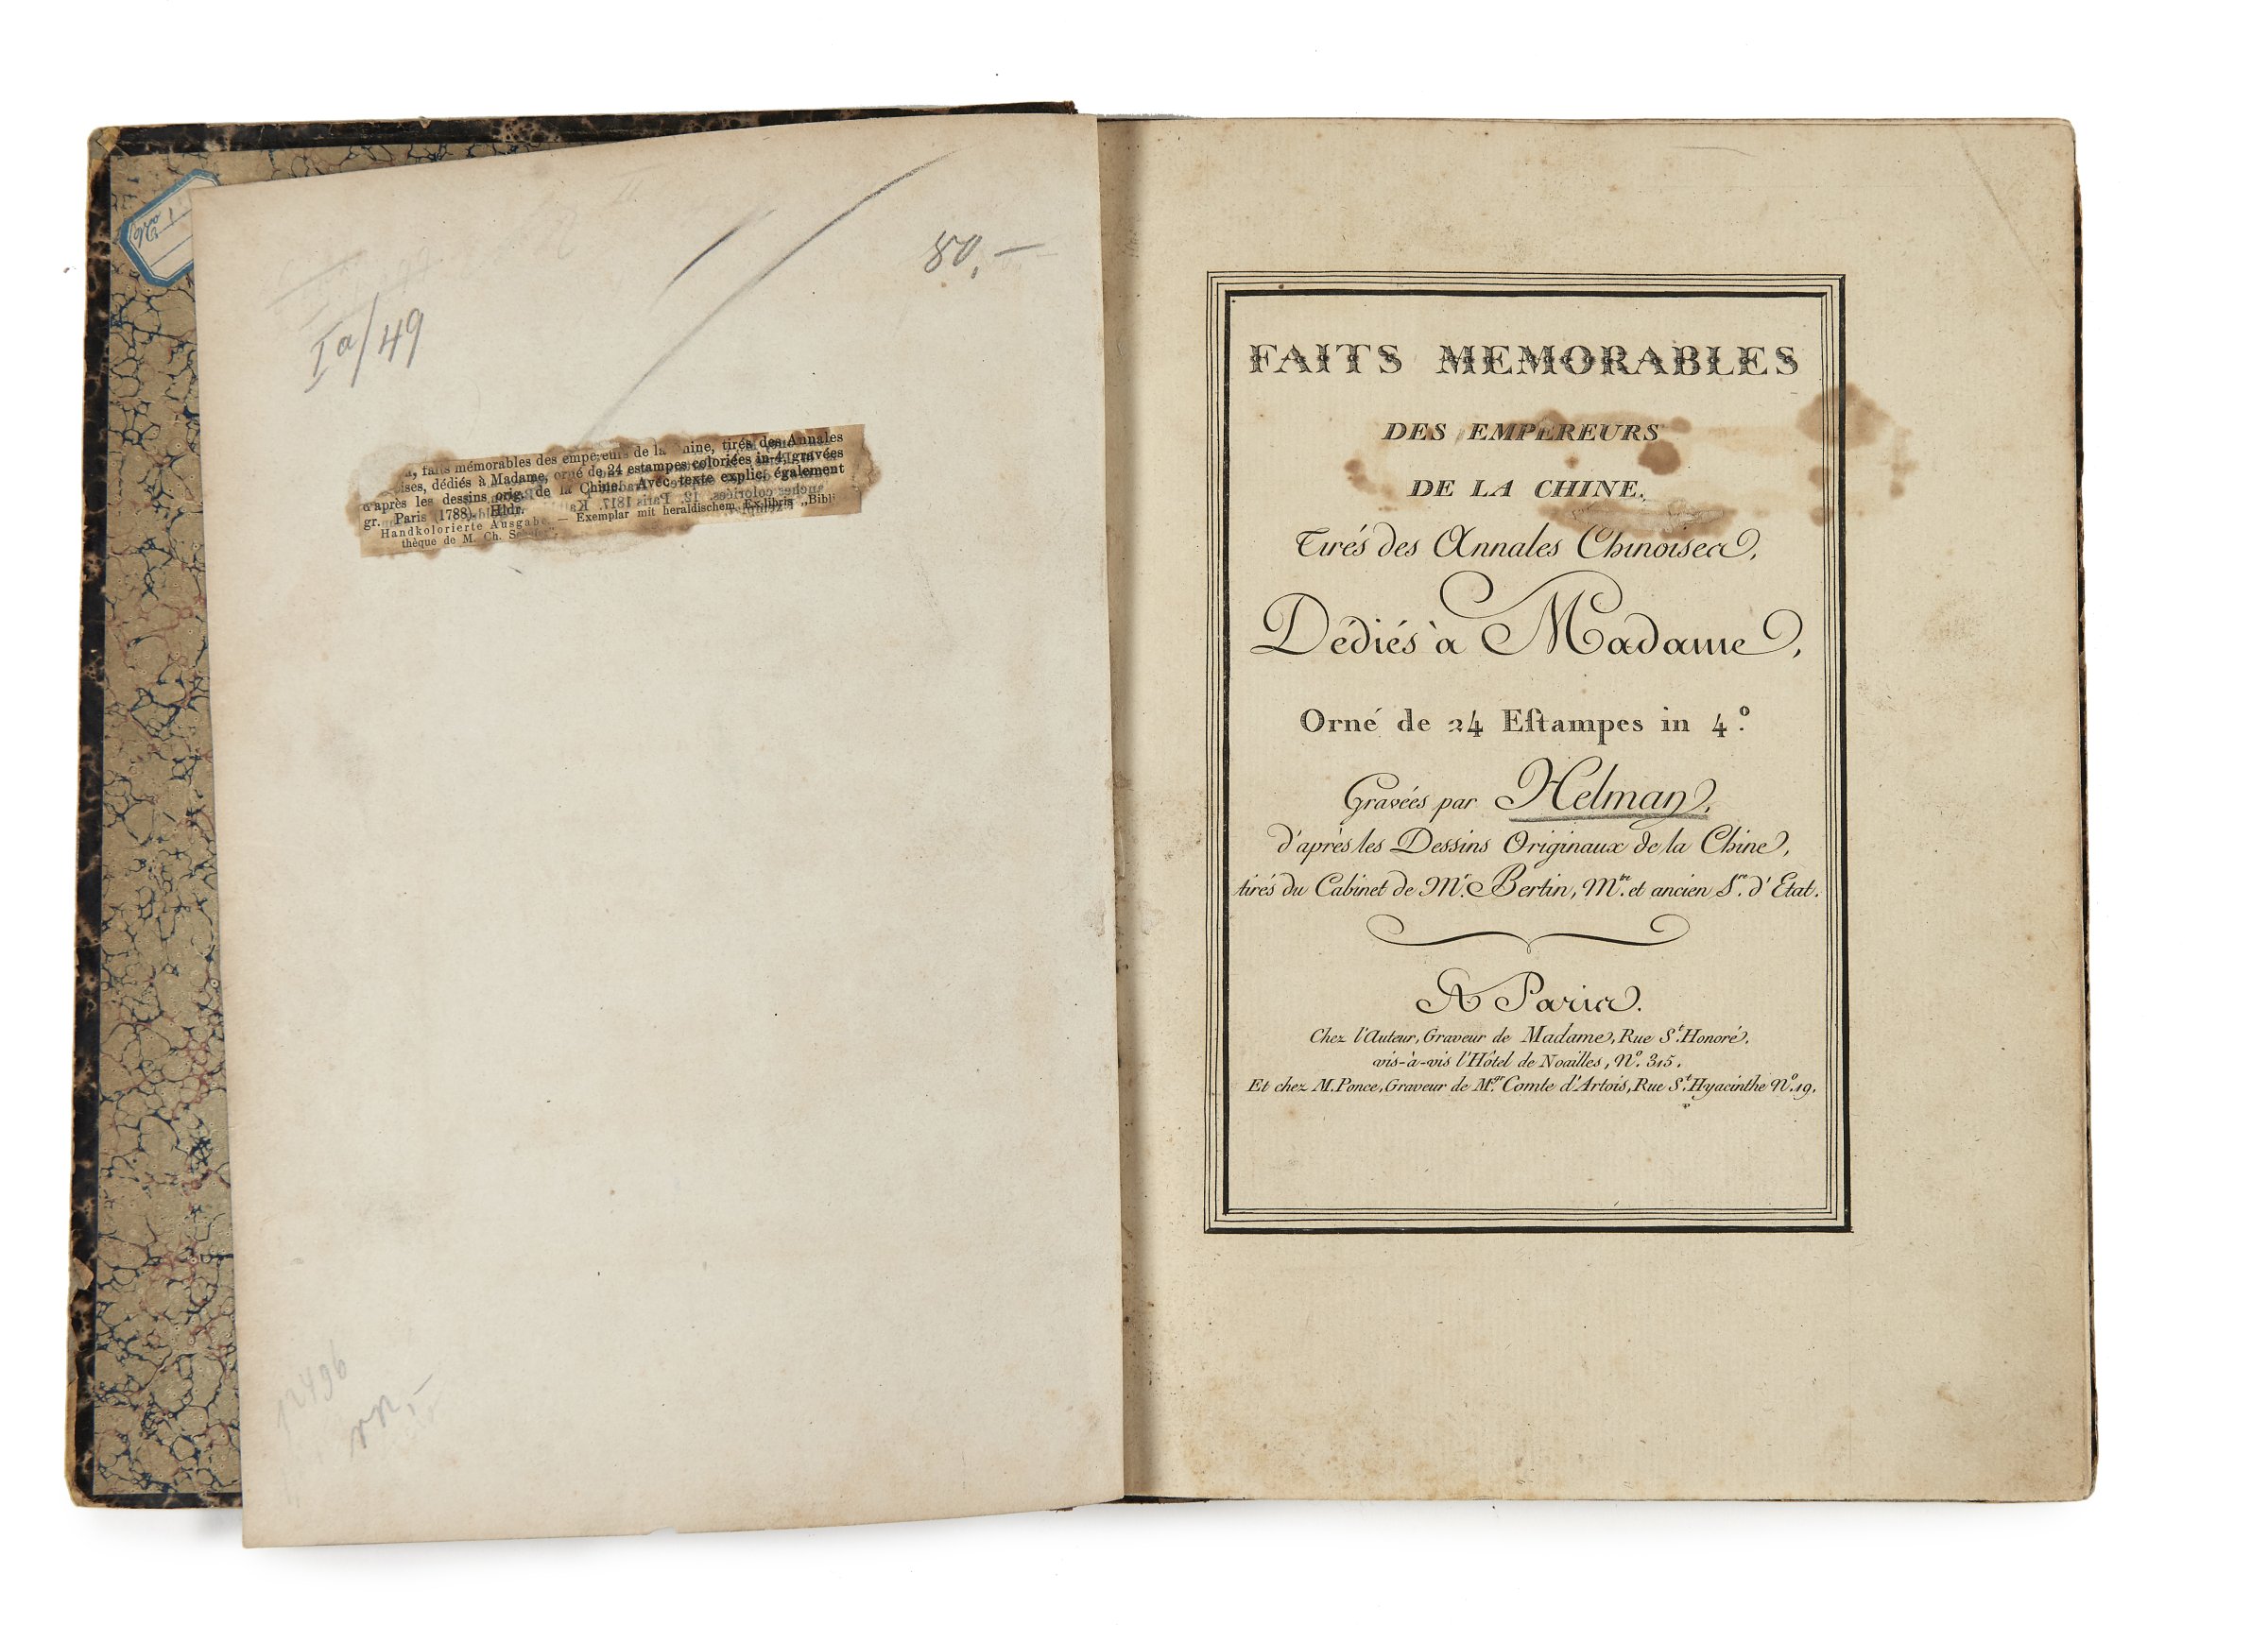 80,–
Ia/49
faits mémorables des empereurs de la hine, tirés des Annales
ises, dédiés à Madame, orné de 24 estampes coloriées in-4, gravées
d'après les dessins orig. de la Chine. Avec texte explic. également
gr. Paris (1788). Hldr.
Handkolorierte Ausgabe. — Exemplar mit heraldischem Exlibris „Bibli
thèque de M. Ch.
FAITS MEMORABLES
DES EMPEREURS
DE LA CHINE.
Tirés des Annales Chinoises,
Dédiés à Madame,
Orné de 24 Eſtampes in 4.º
Gravées par Helman,
d'après les Dessins Originaux de la Chine,
tirés du Cabinet de Mr. Bertin, Mtre. et ancien Sre. d'Etat.
A Paris.
Chez l'Auteur, Graveur de Madame, Rue St. Honoré,
vis-à-vis l'Hôtel de Noailles, Nº. 315.
Et chez M. Ponce, Graveur de Mgr. Comte d'Artois, Rue St. Hyacinthe Nº. 19.